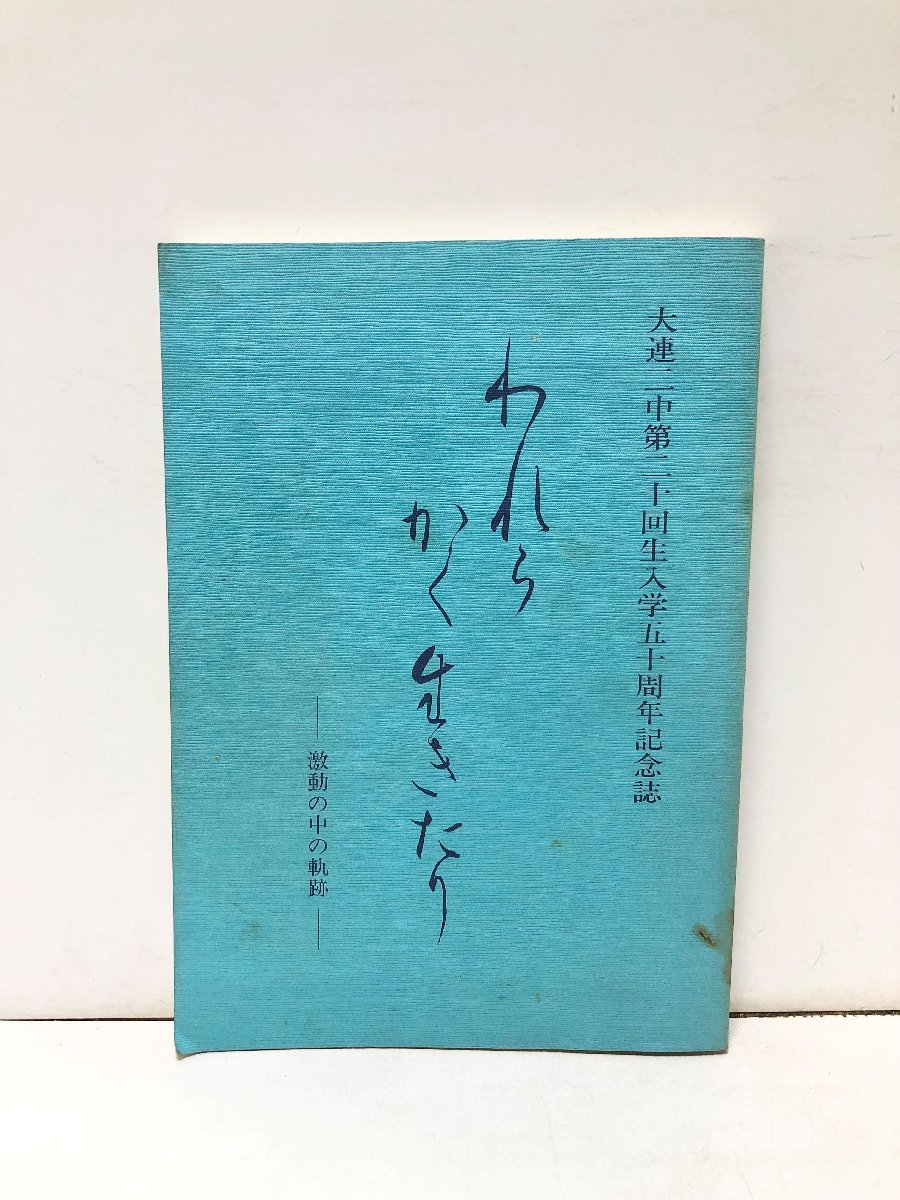 大連二中第二十回生入学五十周年記念誌
われら
かく生きたり
――激動の中の軌跡――